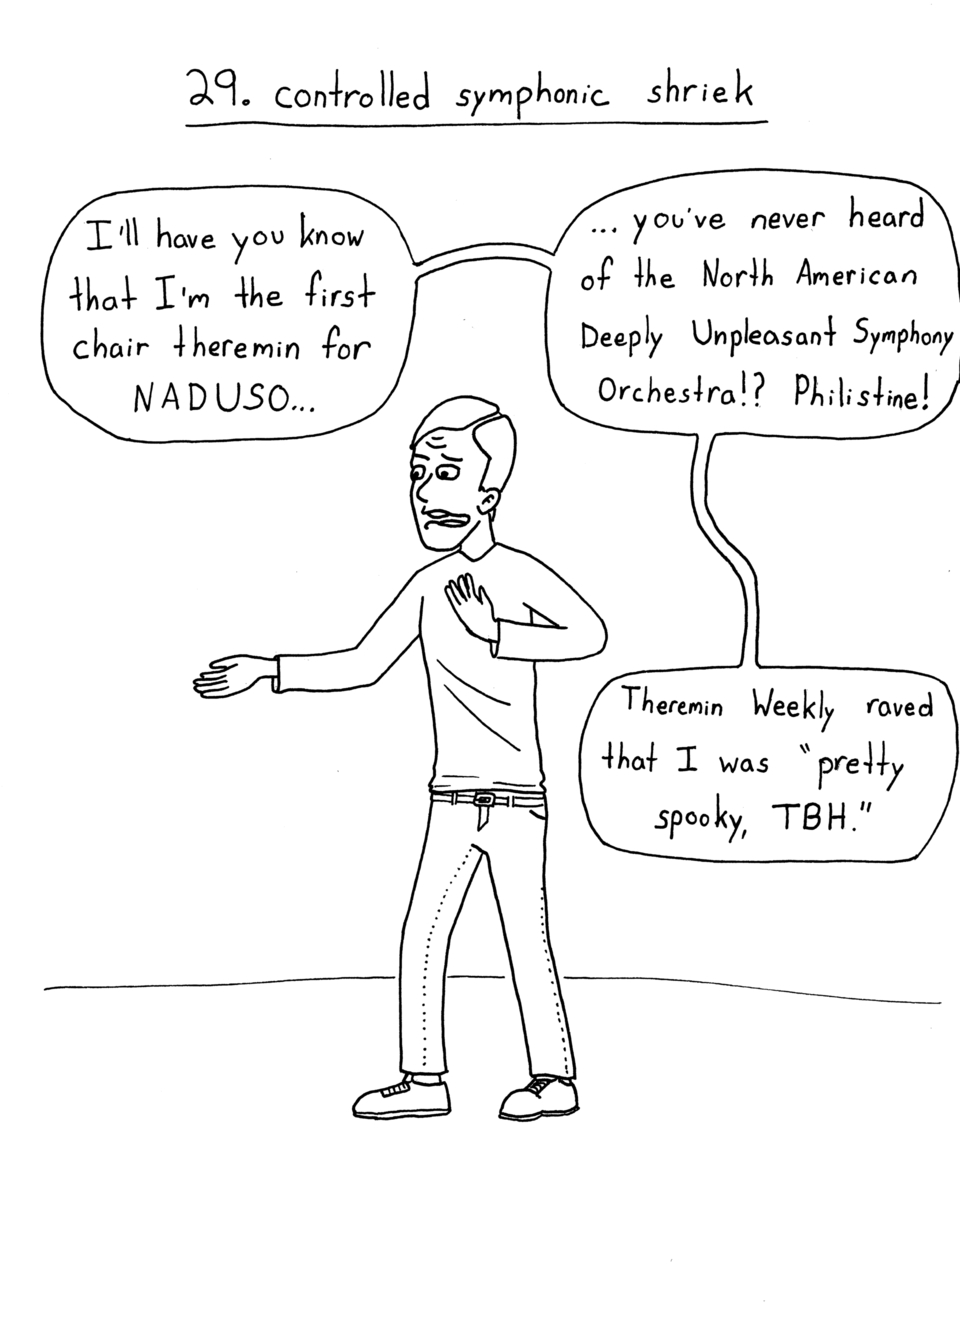 29. controlled symphonic shriek
I'll have you know
that I'm the first
chair theremin for
NADUSO...
... you've never heard
of the North American
Deeply Unpleasant Symphony
Orchestra!? Philistine!
Theremin Weekly raved
that I was "pretty
spooky, TBH."